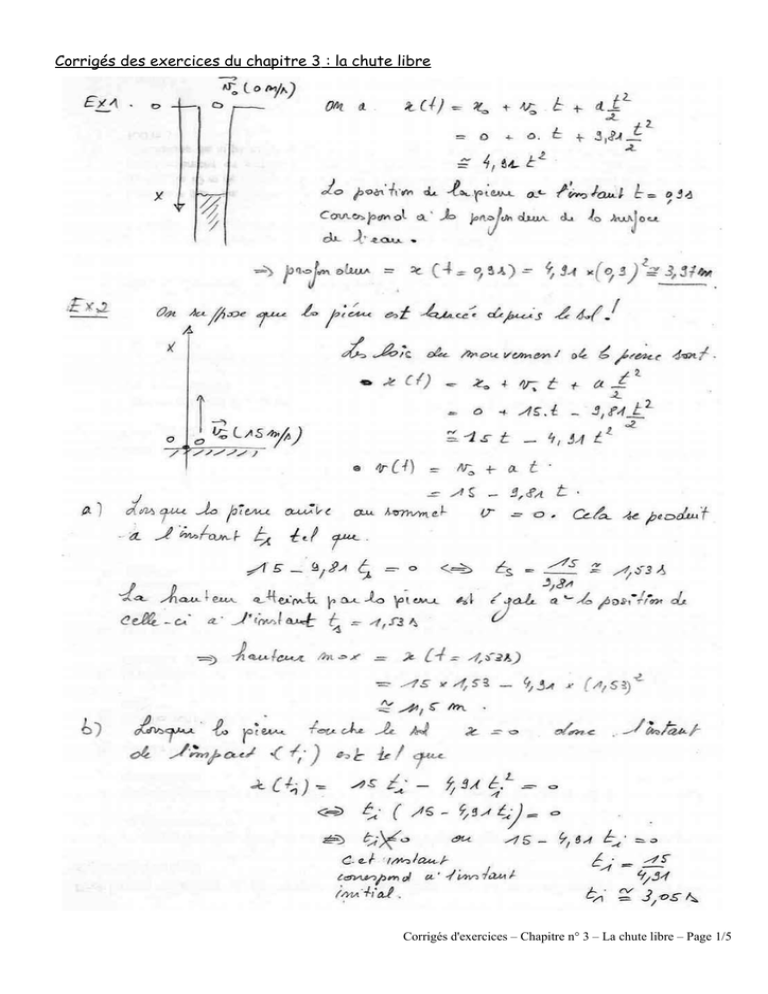 Corrigés des exercices du chapitre 3 : la chute libre
Ex1. 0 0 v₀ (0 m/s) On a x(t) = x₀ + v₀ t + a t²/2
= 0 + 0. t + 9,81 t²/2
≅ 4,91 t²
x La position de la pierre à l'instant t = 0,9s
correspond à la profondeur de la surface
de l'eau.
=> profondeur = x (t = 0,9s) = 4,91 × (0,9)² ≅ 3,97m
Ex.2 On suppose que la pierre est lancée depuis le sol !
x Les lois du mouvement de la pierre sont.
• x(t) = x₀ + v₀ t + a t²/2
= 0 + 15.t - 9,81 t²/2
0 0 v₀ (15 m/s) ≅ 15 t - 4,91 t²
• v(t) = v₀ + a t.
= 15 - 9,81 t.
a) Lorsque la pierre arrive au sommet v = 0. Cela se produit
à l'instant ts tel que.
15 - 9,81 ts = 0 <=> ts = 15/9,81 ≅ 1,53s
La hauteur atteinte par la pierre est égale à la position de
celle-ci à l'instant ts = 1,53s
=> hauteur max = x (t = 1,53s)
= 15 × 1,53 - 4,91 × (1,53)²
≅ 11,5 m.
b) Lorsque la pierre touche le sol x = 0 donc l'instant
de l'impact (ti) est tel que
x(ti) = 15 ti - 4,91 ti² = 0
<=> ti (15 - 4,91 ti) = 0
=> ti = 0 ou 15 - 4,91 ti = 0
Cet instant ti = 15/4,91
correspond à l'instant
initial. ti ≅ 3,05s
Corrigés d'exercices – Chapitre n° 3 – La chute libre – Page 1/5